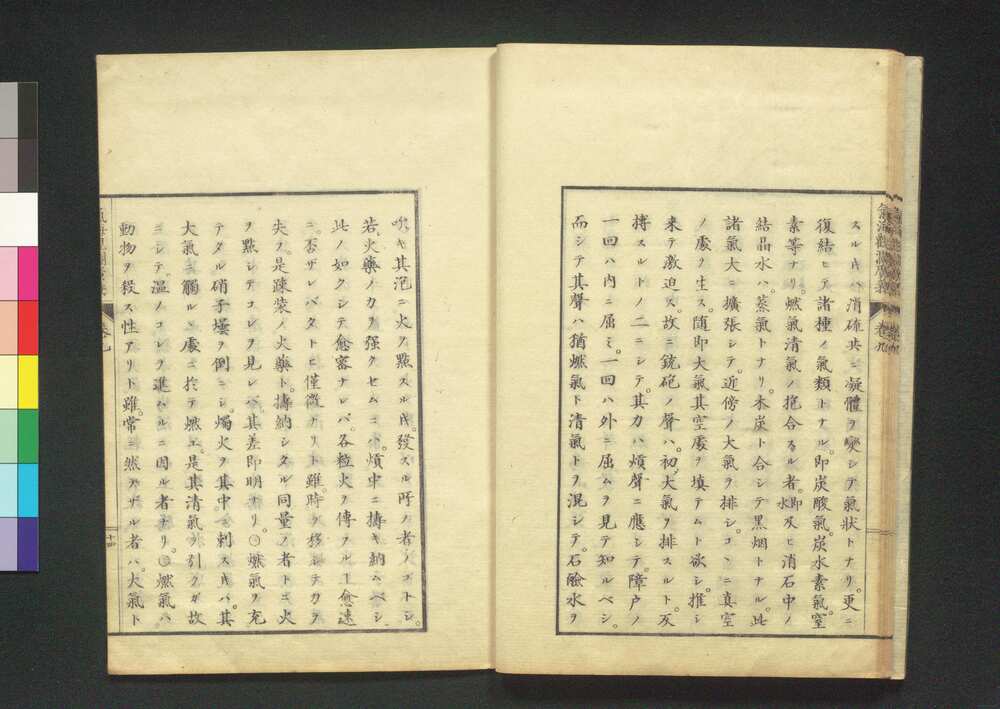 氣海觀瀾廣義
卷九
スル𪜈ハ消硫共ニ凝體ヲ變シテ氣状トナリ。更ニ
復結ヒテ諸種ノ氣類トナル。即炭酸氣。炭水素氣。窒
素等ナリ。燃氣清氣ノ抱合スル者。即水及ヒ消石中ノ
結晶水ハ。蒸氣トナリ。木炭ト合シテ黒烟トナル。此
諸氣大ニ擴張シテ。近傍ノ大氣ヲ排シ。コヽニ真空
ノ處ヲ生ス。随即大氣其空處ヲ填テムト欲シ。推シ
来テ激迫ス。故ニ銃砲ノ聲ハ。初メ大氣ヲ排スルト。反
搏スルトノ二ニシテ。其力ハ煩聲ニ應シテ。障戸ノ
一回ハ内ニ屈ミ。一回ハ外ニ屈ムヲ見テ知ルベシ。
而シテ其聲ハ猶燃氣ト清氣トヲ混シテ。石鹼水ヲ
吹キ其泡ニ火ヲ點スル𪜈。發スル所ノ者ノゴトシ。
若火藥ノ力ヲ强クセムニハ。煩中ニ擣キ納ムベシ
此ノ如クシテ愈密ナレバ。各粒火ヲ傳フルヿ愈速
ニ。否ザレバタトヒ僅微ナリト雖。時ヲ移シテカヲ
失フ。是疎装ノ火藥ト。擣納シタル同量ノ者トニ火
ヲ點シテコレヲ見レバ其差即明ナリ。〇燃氣ヲ充
テタル硝子壜ヲ倒ニシ。燭火ヲ其中ニ刺ス𪜈ハ。其
大氣ニ觸ルヽ處ニ於テ燃ユ。是其清氣ヲ引クガ故
ニシテ。温ノコレヲ進ムルニ因ル者ナリ。〇燃氣ハ
動物ヲ殺ス性アリト雖。常ニ然ラザル者ハ。大氣ト
卷九
十四